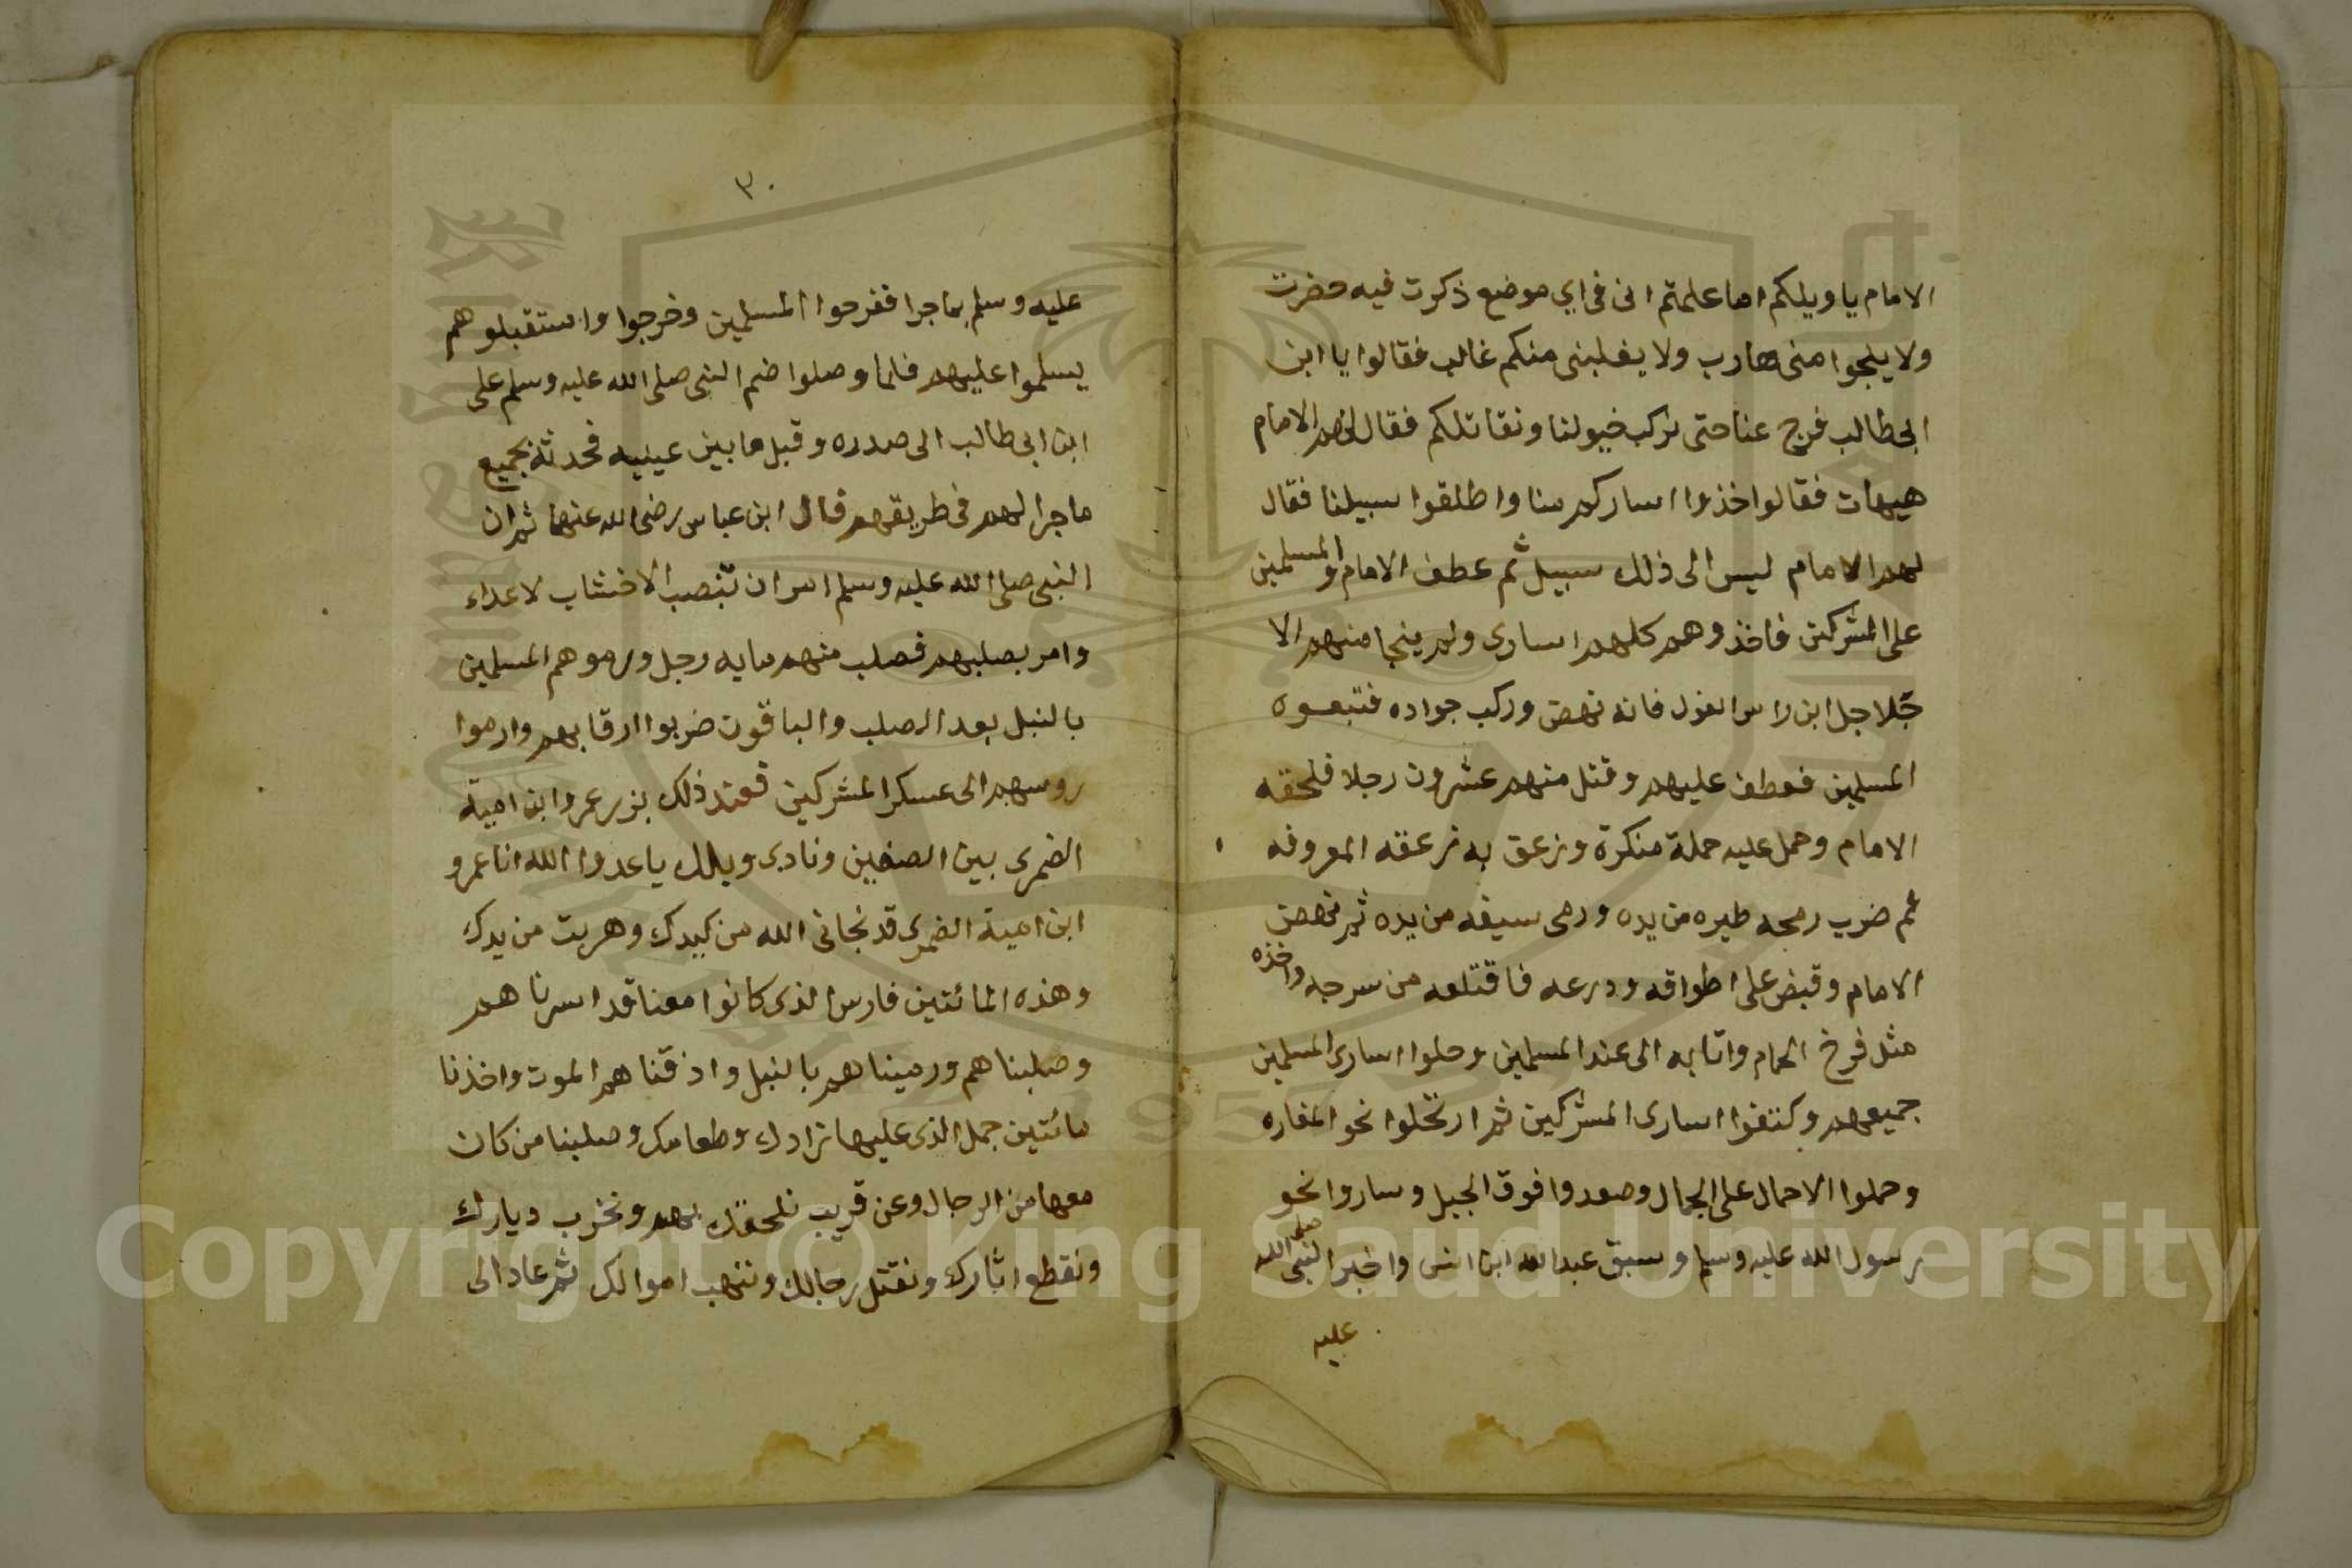 الامام يا ويلكم اما علمتم انى فى اي موضع ذكرت فيه حضرت
ولا ينجوا منى هارب ولا يغلبنى منكم غالب فقالوا يا ابن
ابى طالب فرج عنا حتى نركب خيولنا ونقاتلكم فقال لهم الامام
هيهات فقالوا خذوا اساركم منا واطلقوا سبيلنا فقال
لهم الامام ليس الى ذلك سبيل ثم عطف الامام والمسلمين
على المشركين فاخذوهم كلهم اسارى ولم ينجا منهم الا
جلاجل ابن راس الغول فانه نهض وركب جواده فتبعوه
المسلمين فعطف عليهم وقتل منهم عشرون رجلا فلحقه
الامام وحمل عليه حملة منكرة وزعق به زعقه المعروفه
ثم ضرب رمحه طيره من يده ورمى سيفه من يده ثم نهض
الامام وقبض على اطواقه ودرعه فاقتلعه من سرجه واخذه
مثل فرخ الحمام واتا به الى عند المسلمين وحلوا اسارى المسلمين
جميعهم وكتفوا اسارى المشركين ثم ارتحلوا نحو المغاره
وحملوا الاحمال على الجمال وصعدوا فوق الجبل وساروا نحو
رسول الله عليه وسلم وسبق عبد الله ابن انس واخبر النبى صلى الله
عليه
٣٠
عليه وسلم بما جرا ففرحوا المسلمين وخرجوا واستقبلوهم
يسلموا عليهم فلما وصلوا ضم النبى صلى الله عليه وسلم على
ابن ابى طالب الى صدره وقبل ما بين عينيه فحدثه بجميع
ما جرا لهم فى طريقهم قال ابن عباس رضى الله عنهما ثم ان
النبى صلى الله عليه وسلم امر ان تنصب الاخشاب لاعداء
وامر بصلبهم فصلب منهم مايه رجل ورموهم المسلمين
بالنبل بعد الصلب والباقون ضربوا ارقابهم وارموا
روسهم الى عسكر المشركين فعند ذلك برز عمروا ابن امية
الضمرى بين الصفين ونادى ويلك يا عدوا الله انا عمرو
ابن امية الضمرى قد نجانى الله من كيدك وهربت من يدك
وهذه المائتين فارس الذى كانوا معنا قد اسرناهم
وصلبناهم ورميناهم بالنبل واذقناهم الموت واخذنا
مائتين جمل الذى عليها زادك وطعامك وصلبنا من كان
معها من الرجال وعن قريب نلحقك بهم ونخرب ديارك
ونقطع اثارك ونقتل رجالك وننهب اموالك ثم عاد الى
Copyright © King Saud University
1957